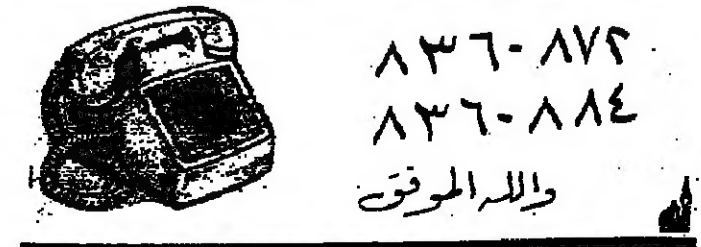 ٨٣٦-٨٧٢
٨٣٦-٨٨٤
والله الموفق